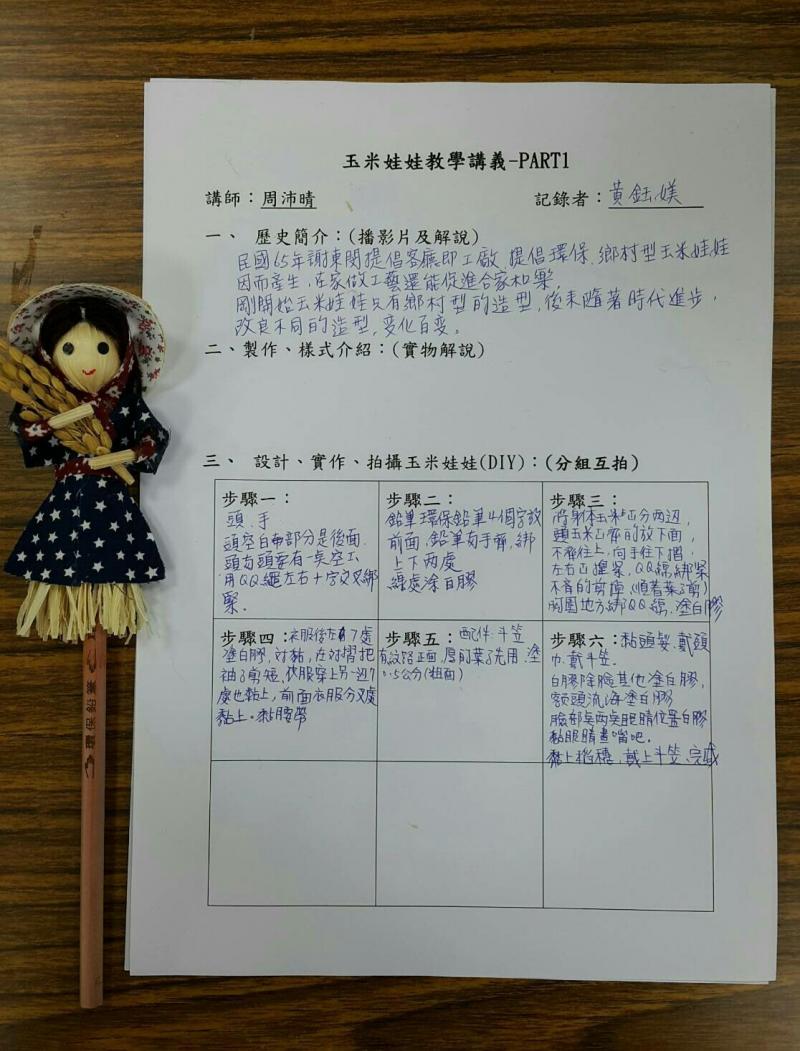 玉米娃娃教學講義-PART1
講師：周沛晴
記錄者：黃鈺媄
一、 歷史簡介：(播影片及解說)
民國65年謝東閔提倡客廳即工廠、提倡環保、鄉村型玉米娃娃
因而產生，在家做工藝還能促進合家和樂，
剛開始玉米娃娃只有鄉村型的造型，後來隨著時代進步，
改良不同的造型，變化百變。
二、製作、樣式介紹：(實物解說)
三、 設計、實作、拍攝玉米娃娃(DIY)：(分組互拍)
步驟一：
頭、手
頭空白布部分是後面
用QQ繩左右十字交叉綁
緊。
步驟二：
鉛筆環保鉛筆4個字放
前面，鉛筆與手齊，綁
上下兩處
纏處塗白膠
步驟三：
頭玉米凸齊的放下面，
不齊往上，向手往下摺，
左右凸
(順著葉子剪)
胸圍地方綁QQ綿，塗白膠
步驟四：衣服後左右7處
塗白膠，對黏，在對摺把
袖子剪短，衣服穿上另一邊7
處也黏上，前面衣服分叉處
黏上。黏腰帶
步驟五： 配件：斗笠
有紋路正面，厚的葉子先用，塗
0.5公分(粗面)
步驟六：黏頭髮、戴頭
巾、戴斗笠。
白膠除臉其他塗白膠，
額頭流海塗白膠
臉部點兩點眼睛位置白膠
黏眼睛畫嘴吧。
黏上稻穗，戴上斗笠、完成
環保鉛筆